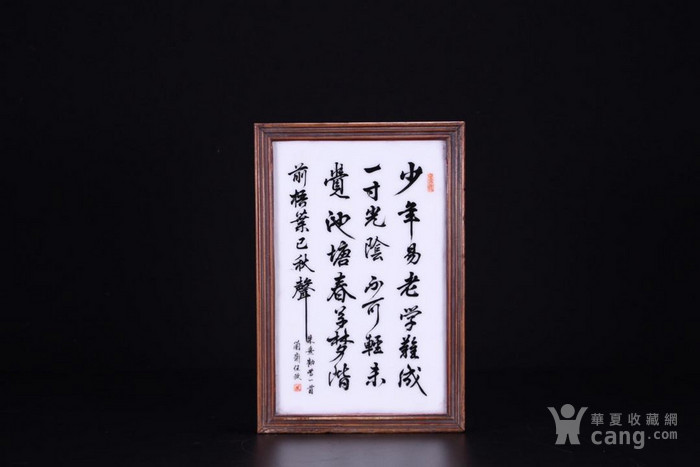 少年易老学難成
一寸光陰不可輕未
覺池塘春草夢階
前梧葉已秋聲
朱熹勸学一首
華夏收藏網
cang.com